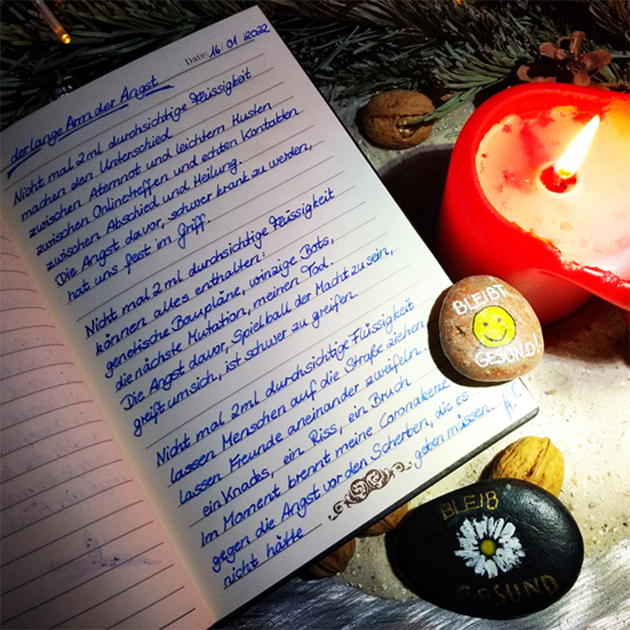 Date: 16/01/2022
der lange Arm der Angst
Nicht mal 2ml durchsichtige Flüssigkeit
machen den Unterschied
zwischen Atemnot und leichtem Husten
zwischen Onlinetreffen und echten Kontakten
zwischen Abschied und Heilung.
Die Angst davor, schwer krank zu werden,
hat uns fest im Griff.
Nicht mal 2ml durchsichtige Flüssigkeit
können alles enthalten:
genetische Baupläne, winzige Bots,
die nächste Mutation, meinen Tod.
Die Angst davor, Spielball der Macht zu sein,
greift um sich, ist schwer zu greifen.
Nicht mal 2ml durchsichtige Flüssigkeit
lassen Menschen auf die Straße ziehen
lassen Freunde aneinander zweifeln.
ein Knacks, ein Riss, ein Bruch
Im Moment brennt meine Coronakerze
gegen die Angst vor den Scherben, die es
nicht hätte geben müssen. A.T.
BLEIBT
GESUND!
BLEIB
GESUND